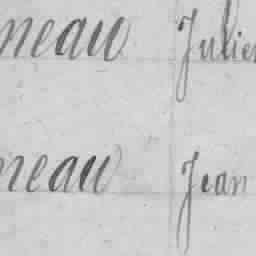 neau Julien
neau Jean